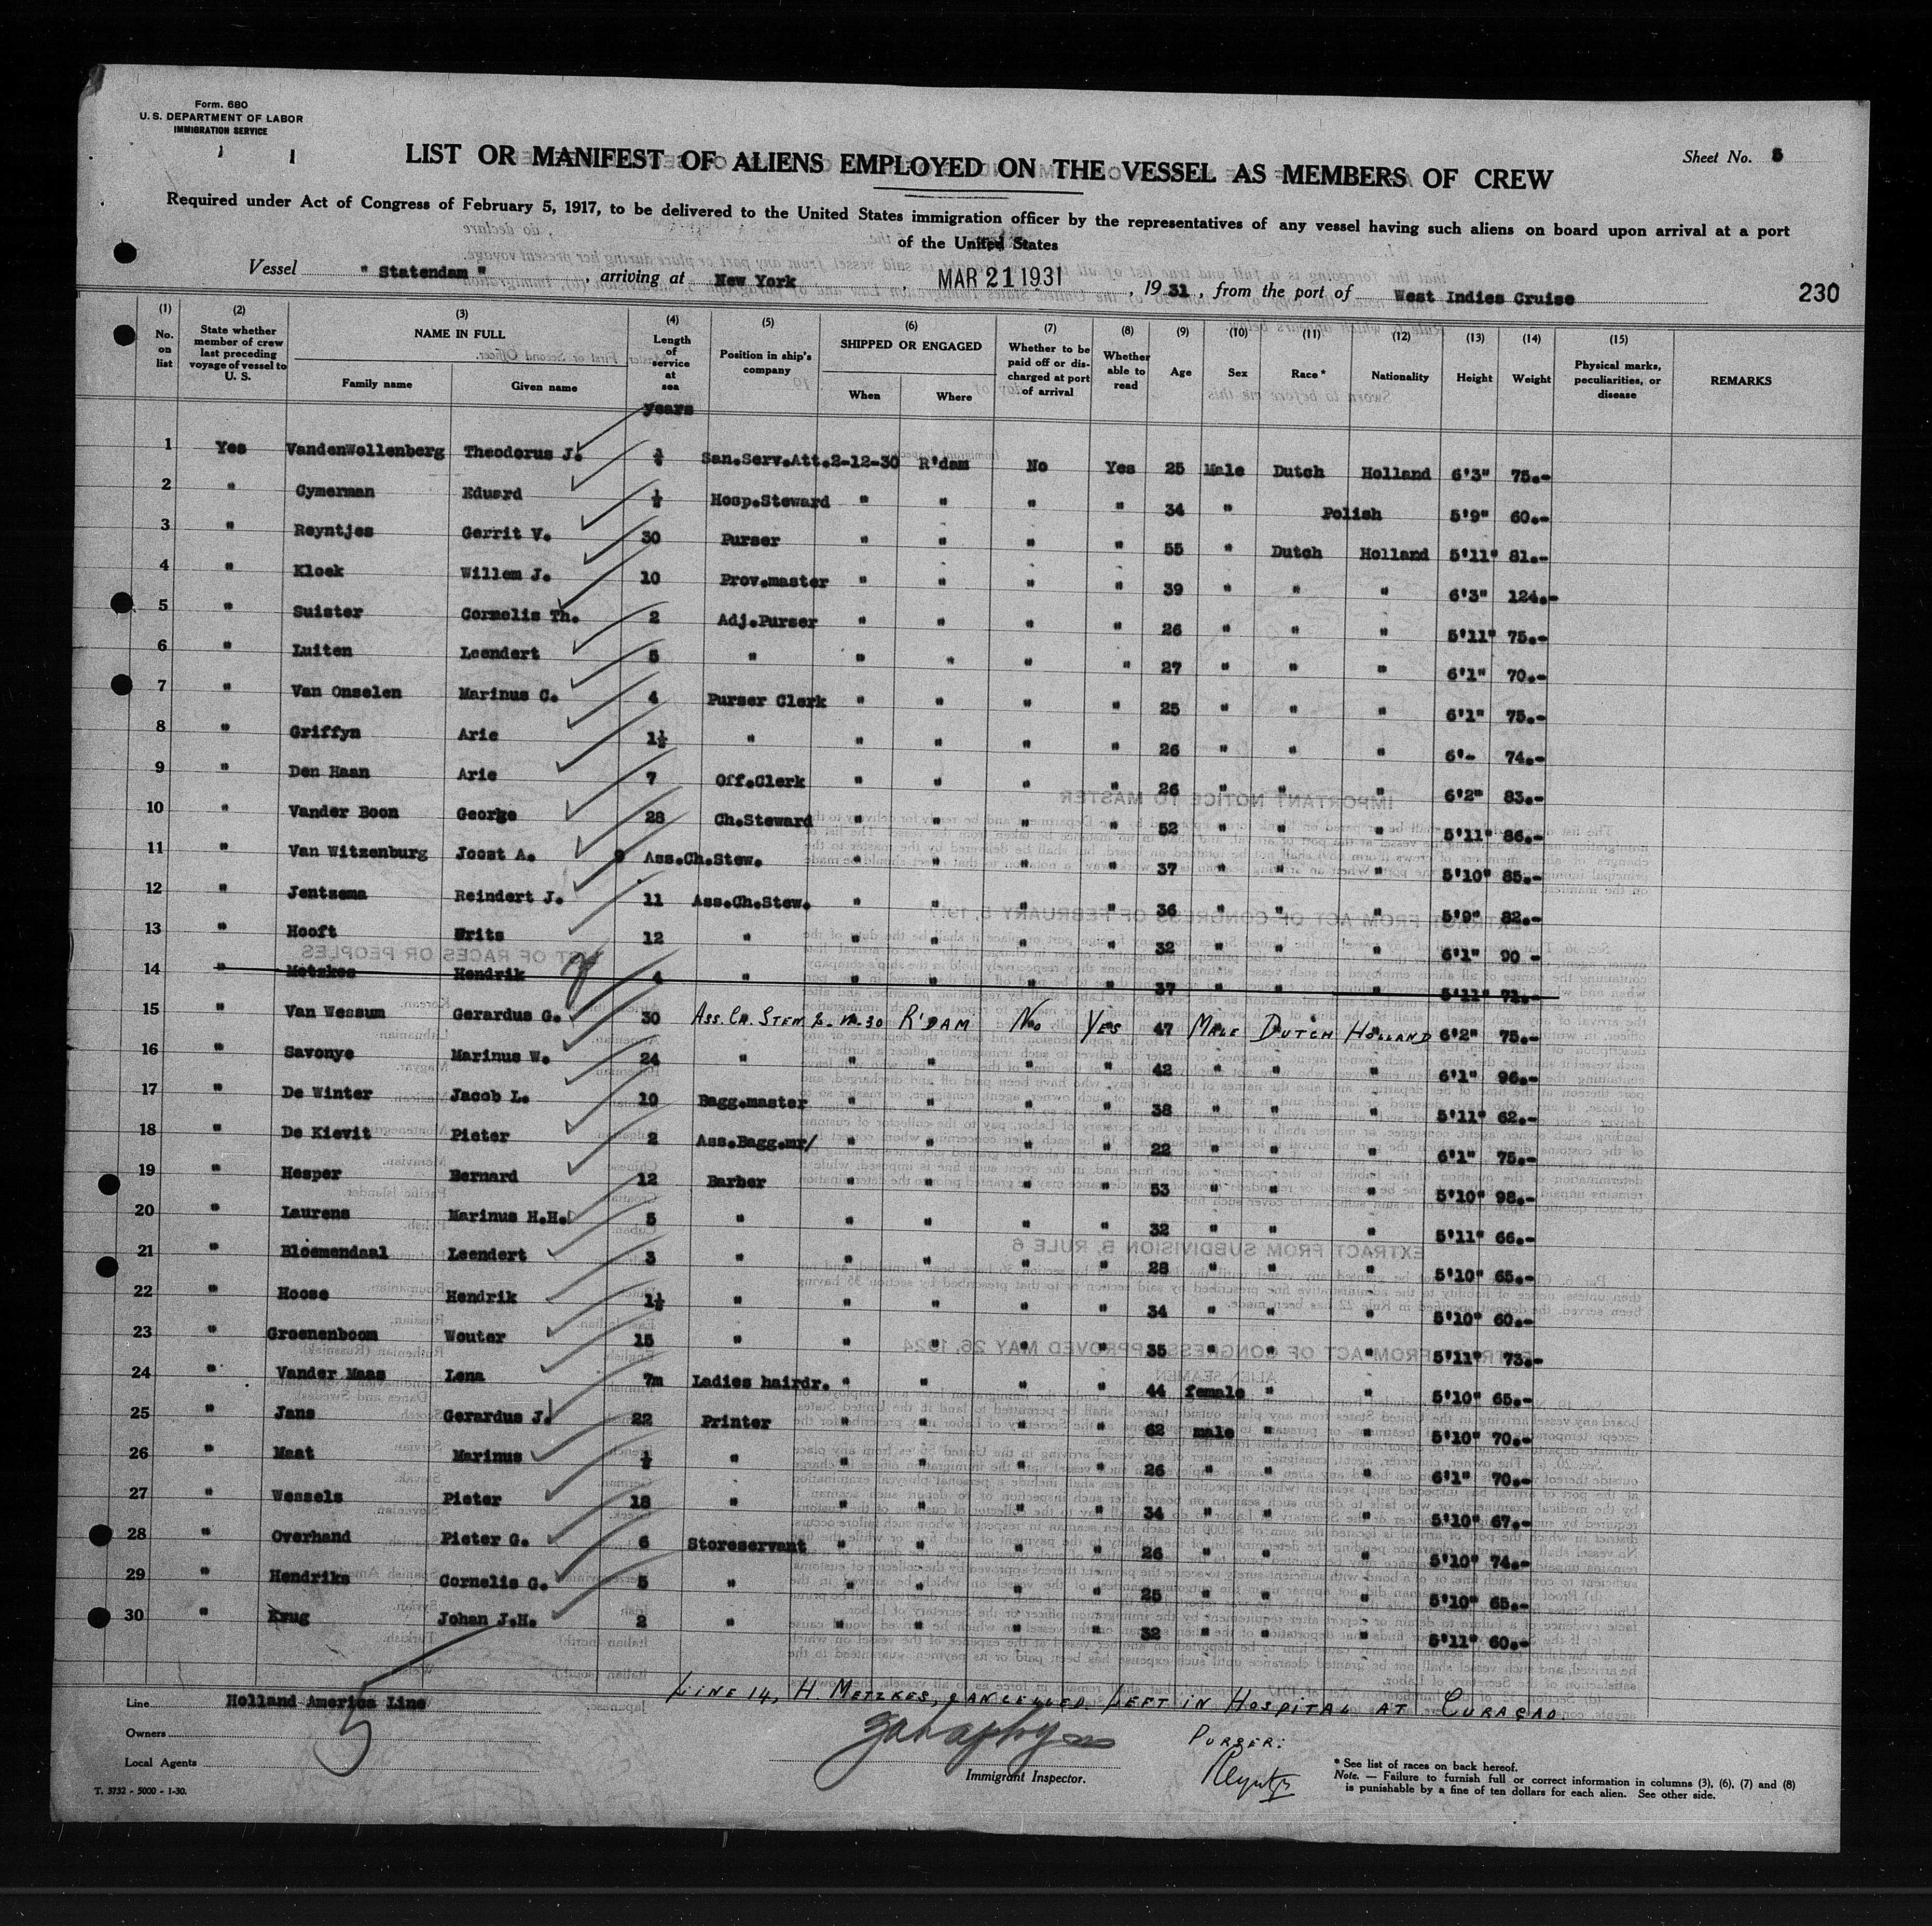 Form. 680
U. S. DEPARTMENT OF LABOR
IMMIGRATION SERVICE
Sheet No. 5
LIST OR MANIFEST OF ALIENS EMPLOYED ON THE VESSEL AS MEMBERS OF CREW
Required under Act of Congress of February 5, 1917, to be delivered to the United States immigration officer by the representatives of any vessel having such aliens on board upon arrival at a port
of the United States
Vessel "Statendam", arriving at New York, MAR 21 1931, 1931, from the port of West Indies Cruise
230
(1) (2) (3) (4) (5) (6) (7) (8) (9) (10) (11) (12) (13) (14) (15)
No. on list State whether member of crew last preceding voyage of vessel to U. S. NAME IN FULL Family name Given name Length of service at sea Position in ship's company SHIPPED OR ENGAGED When Where Whether to be paid off or discharged at port of arrival Whether able to read Age Sex Race* Nationality Height Weight Physical marks, peculiarities, or disease REMARKS
years
1 Yes VandenWollenberg Theodorus J. San.Serv.Att. 2-12-30 R'dam No Yes 25 Male Dutch Holland 6'3" 75.-
2 " Cymerman Eduard ½ Hosp.Steward " " " " 34 " Polish 5'9" 60.-
3 " Reyntjes Gerrit V. 30 Purser " " " " 55 " Dutch Holland 5'11" 81.-
4 " Kloek Willem J. 10 Prov.master " " " " 39 " " " 6'3" 124.-
5 " Suister Cornelis Th. 2 Adj.Purser " " " " 26 " " " 5'11" 75.-
6 " Luiten Leendert 5 " " " " " 27 " " " 6'1" 70.-
7 " Van Onselen Marinus C. 4 Purser Clerk " " " " 25 " " " 6'1" 75.-
8 " Griffyn Arie 1½ " " " " " 26 " " " 6'- 74.-
9 " Den Haan Arie 7 Off.Clerk " " " " 26 " " " 6'2" 83.-
10 " Vander Boon George 28 Ch.Steward " " " " 52 " " " 5'11" 86.-
11 " Van Witzenburg Joost A. 9 Ass.Ch.Stew. " " " " 37 " " " 5'10" 85.-
12 " Jentzema Reindert J. 11 Ass.Ch.Stew. " " " " 36 " " " 5'9" 82.-
13 " Hooft Frits 12 " " " " " 32 " " " 6'1" 90 -
14 " Metzkes Hendrik 4 " " " " " 37 " " " 5'11" 71.-
15 " Van Wessum Gerardus G. 30 ASS. CH. STEW. 2-12-30 R'DAM NO YES 47 MALE DUTCH HOLLAND 6'2" 75.-
16 " Savonye Marinus W. 24 " " " " " 42 " " " 6'1" 96.-
17 " De Winter Jacob L. 10 Bagg.master " " " " 38 " " " 5'11" 62.-
18 " De Kievit Pieter 2 Ass.Bagg.mr/ " " " " 22 " " " 6'1" 75.-
19 " Hesper Bernard 12 Barber " " " " 53 " " " 5'10" 98.-
20 " Laurens Marinus H.H. 5 " " " " " 32 " " " 5'11" 66.-
21 " Bloemendaal Leendert 3 " " " " " 28 " " " 5'10" 65.-
22 " Hoose Hendrik 1½ " " " " " 34 " " " 5'10" 60.-
23 " Groenenboom Wouter 15 " " " " " 35 " " " 5'11" 73.-
24 " Vander Maas Lena 7m Ladies hairdr. " " " " 44 female " " 5'10" 65.-
25 " Jans Gerardus J. 22 Printer " " " " 62 male " " 5'10" 70.-
26 " Maat Marinus ½ " " " " " 26 " " " 6'1" 70.-
27 " Wessels Pieter 18 " " " " " 34 " " " 5'10" 67.-
28 " Overhand Pieter G. 6 Storeservant " " " " 26 " " " 5'10" 74.-
29 " Hendriks Cornelis G. 5 " " " " " 25 " " " 5'10" 65.-
30 " Krug Johan J.H. 2 " " " " " 32 " " " 5'11" 60.-
LINE 14, H. METZKES, CANCELLED. LEFT IN HOSPITAL AT CURAÇAO.
Line Holland America Line
Owners
Local Agents
T. 3732 - 5000 - 1-30.
5
Immigrant Inspector.
PURSER:
* See list of races on back hereof.
Note. — Failure to furnish full or correct information in columns (3), (6), (7) and (8)
is punishable by a fine of ten dollars for each alien. See other side.